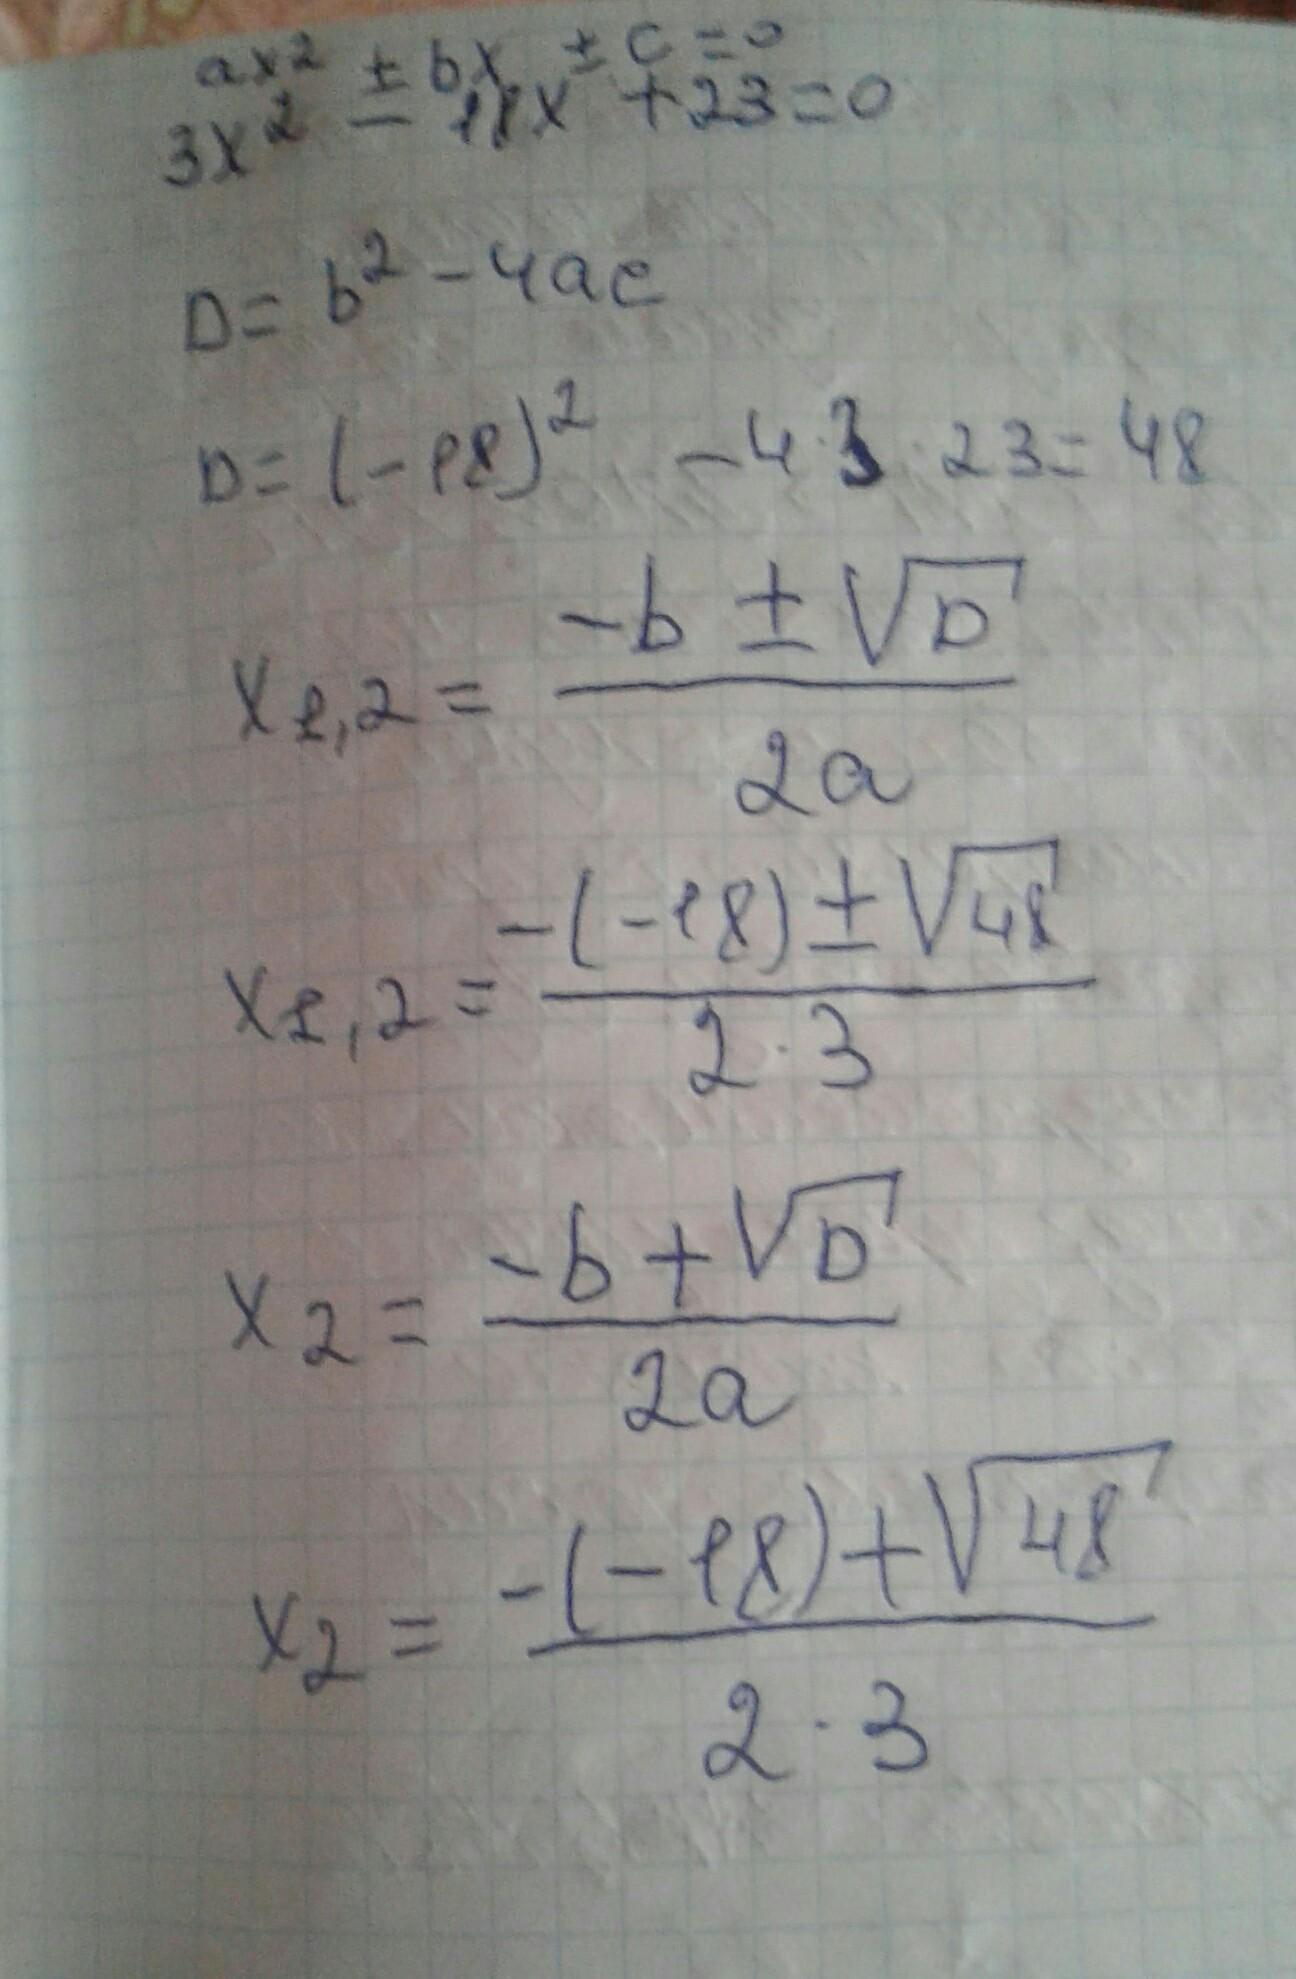 ax² ± bx ± c = 0
3x² - 18x + 23 = 0
D = b² - 4ac
D = (-18)² - 4·3·23 = 48
x₁,₂ = (-b ± √D) / 2a
x₁,₂ = (-(-18) ± √48) / 2·3
x₂ = (-b + √D) / 2a
x₂ = (-(-18) + √48) / 2·3